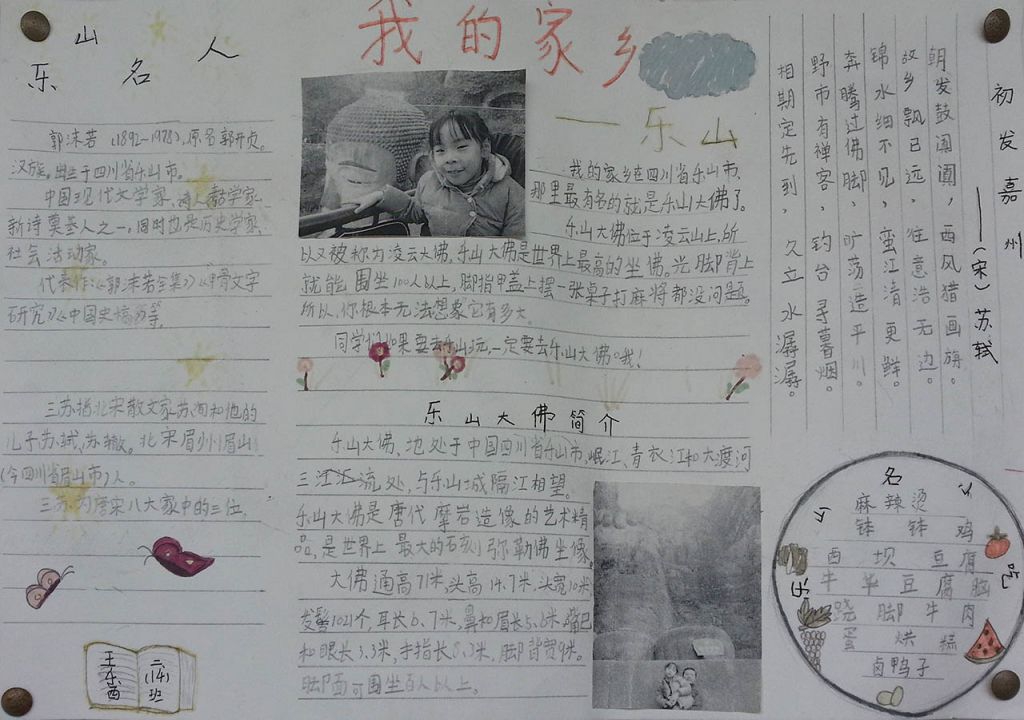 我的家乡
一乐山
乐山名人
郭沫若(1892—1978),原名郭开贞。
汉族。出生于四川省乐山市。
中国现代文学家、诗人、剧学家、
新诗奠基人之一,同时也是历史学家、
社会活动家。
代表作:《郭沫若全集》《甲骨文字
研究》《中国史稿》等。
三苏指北宋散文家苏洵和他的
儿子苏轼、苏辙。北宋眉州眉山
(今四川省眉山市)人。
三苏为唐宋八大家中的三位。
王东西
二(14)班
我的家乡在四川省乐山市,
那里最有名的就是乐山大佛了。
乐山大佛位于凌云山上,所
以又被称为凌云大佛。乐山大佛是世界上最高的坐佛。光脚背上
就能围坐100人以上,脚指甲盖上摆一张桌子打麻将都没问题。
所以,你根本无法想象它有多大。
同学们如果要去乐山玩,一定要去乐山大佛哦!
乐山大佛简介
乐山大佛,地处于中国四川省乐山市,岷江、青衣江和大渡河
三江汇流处,与乐山城隔江相望。
乐山大佛是唐代摩岩造像的艺术精
品,是世界上最大的石刻弥勒佛坐像。
大佛通高71米,头高14.7米,头宽10米,
发髻1021个,耳长6.7米,鼻和眉长5.6米,嘴巴
和眼长3.3米,手指长8.3米,脚背宽9米。
脚面可围坐百人以上。
初发嘉州
——(宋)苏轼
朝发鼓阗阗,西风猎画旗。
故乡飘已远,往意浩无边。
锦水细不见,蛮江清更鲜。
奔腾过佛脚,旷荡造平川。
野市有禅客,钓台寻暮烟。
相期定先到,久立水潺潺。
乐山名小吃
麻辣烫
钵钵鸡
西坝豆腐
牛华豆腐脑
跷脚牛肉
蛋烘糕
卤鸭子